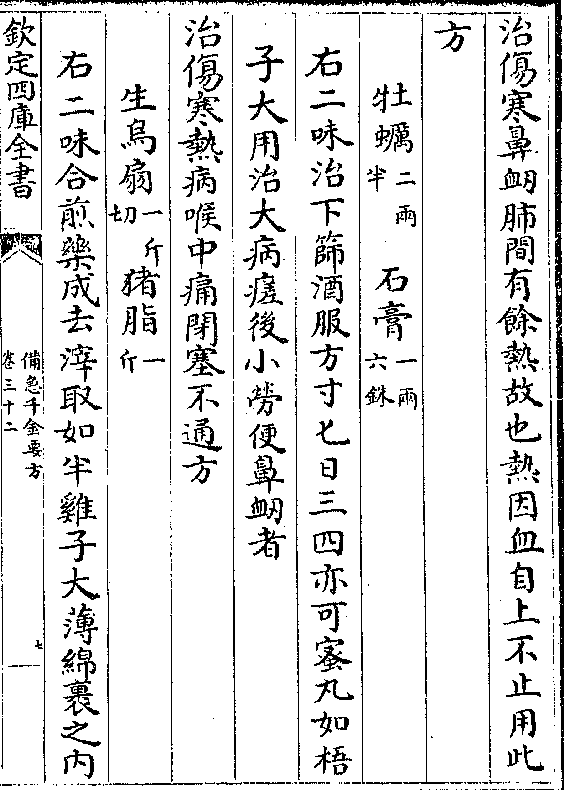 治傷寒鼻衂肺間有餘熱故也熱因血自上不止用此
方
牡蠣二兩半 石膏一兩六銖
右二味治下篩酒服方寸匕日三四亦可蜜丸如梧
子大用治大病瘥後小勞便鼻衂者
治傷寒熱病喉中痛閉塞不通方
生烏扇一斤切 猪脂一斤
右二味合煎藥成去滓取如半雞子大薄綿裹之内
欽定四庫全書
備急千金要方
卷三十二
七